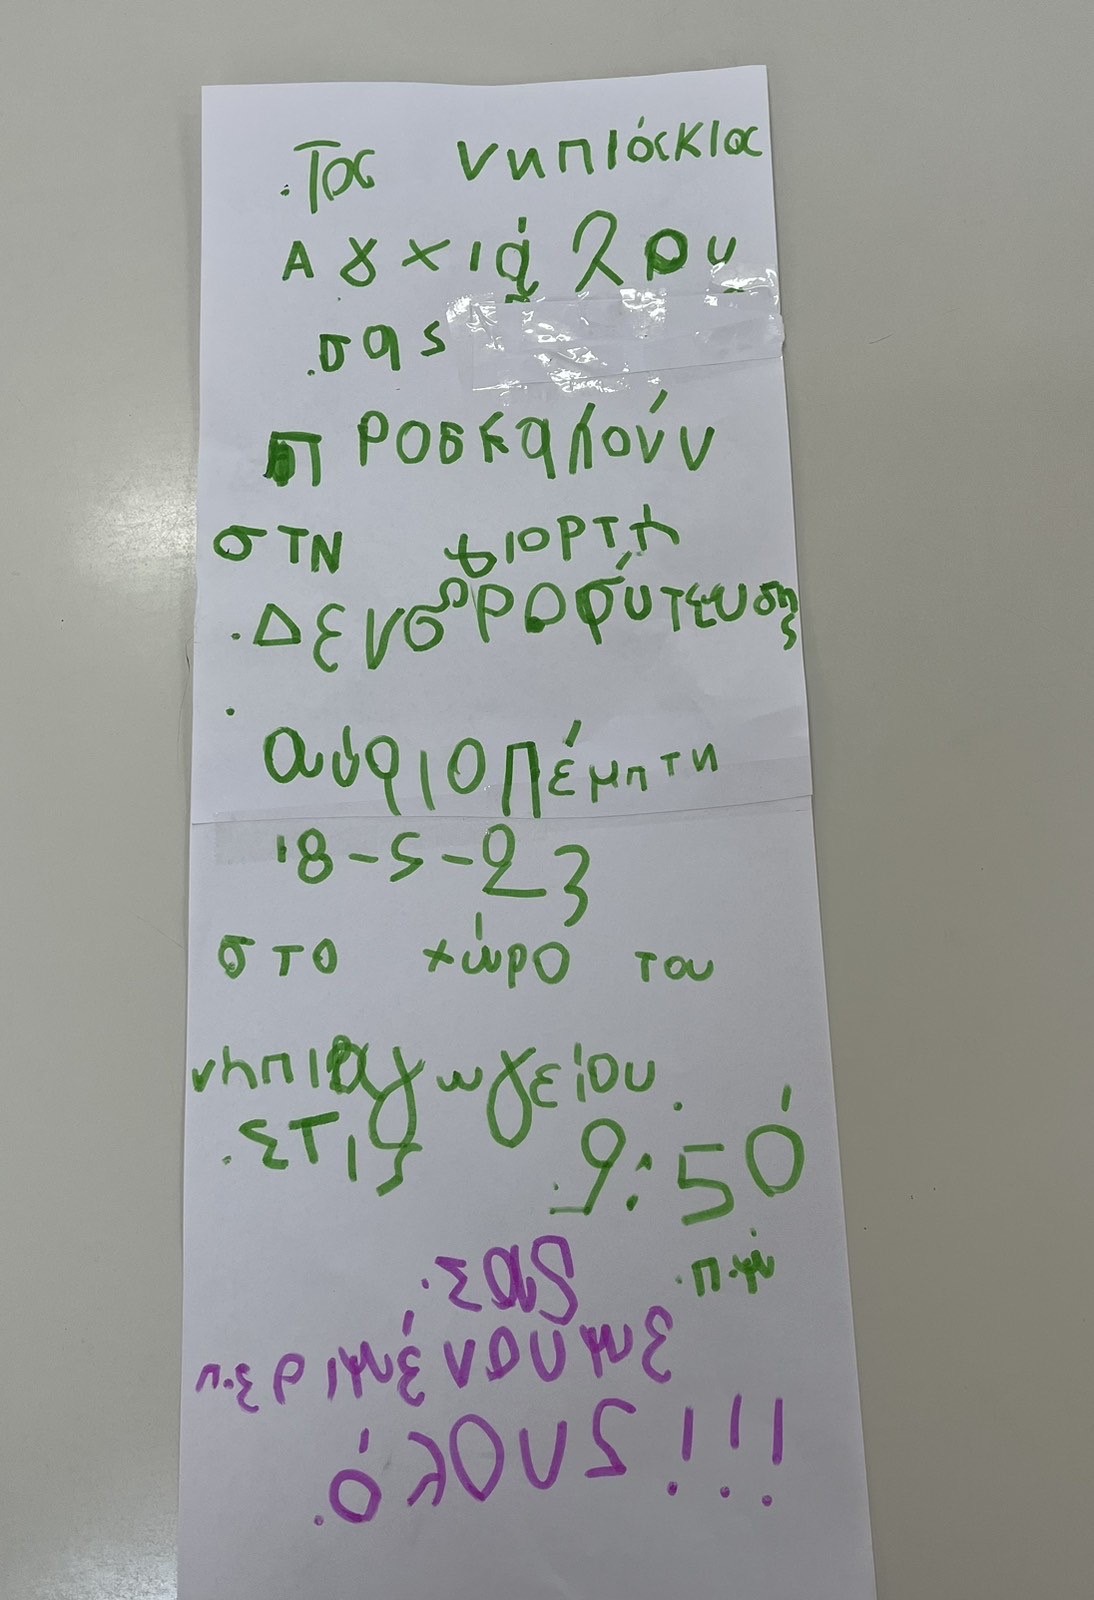 Τα νηπιάκια
Αγχιάλου
σας
προσκαλούν
στν γιορτή
Δενδροφύτευσης
αύριο Πέμπτη
18-5-23
στο χώρο του
νηπιαγωγείου.
Στις 9:50
π.μ
Σας
περιμένουμε
όλους!!!